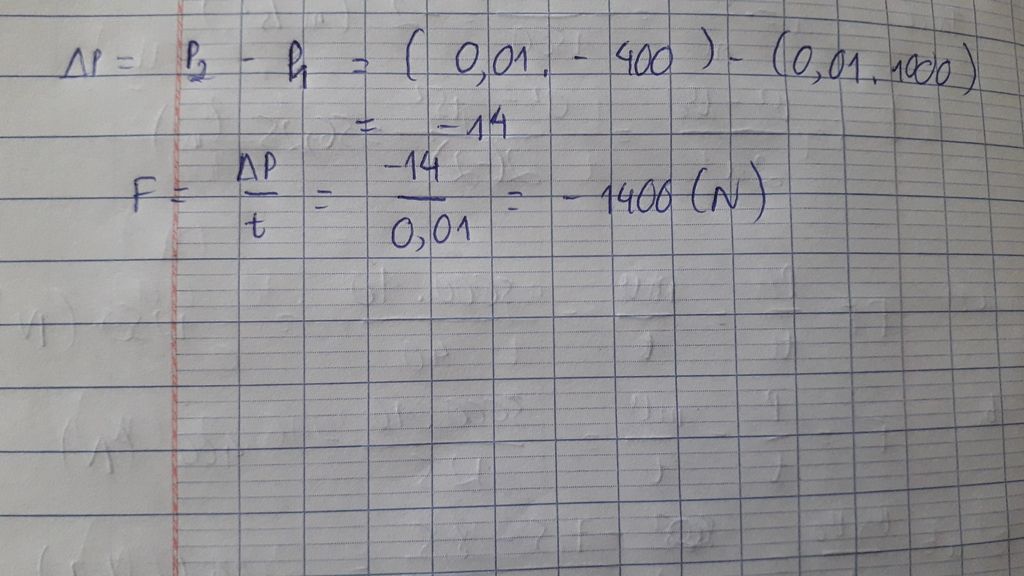 ΔP = P₂ - P₁ = ( 0,01. - 400 ) - (0,01. 1000)
= -14
F = ΔP / t = -14 / 0,01 = - 1400 (N)